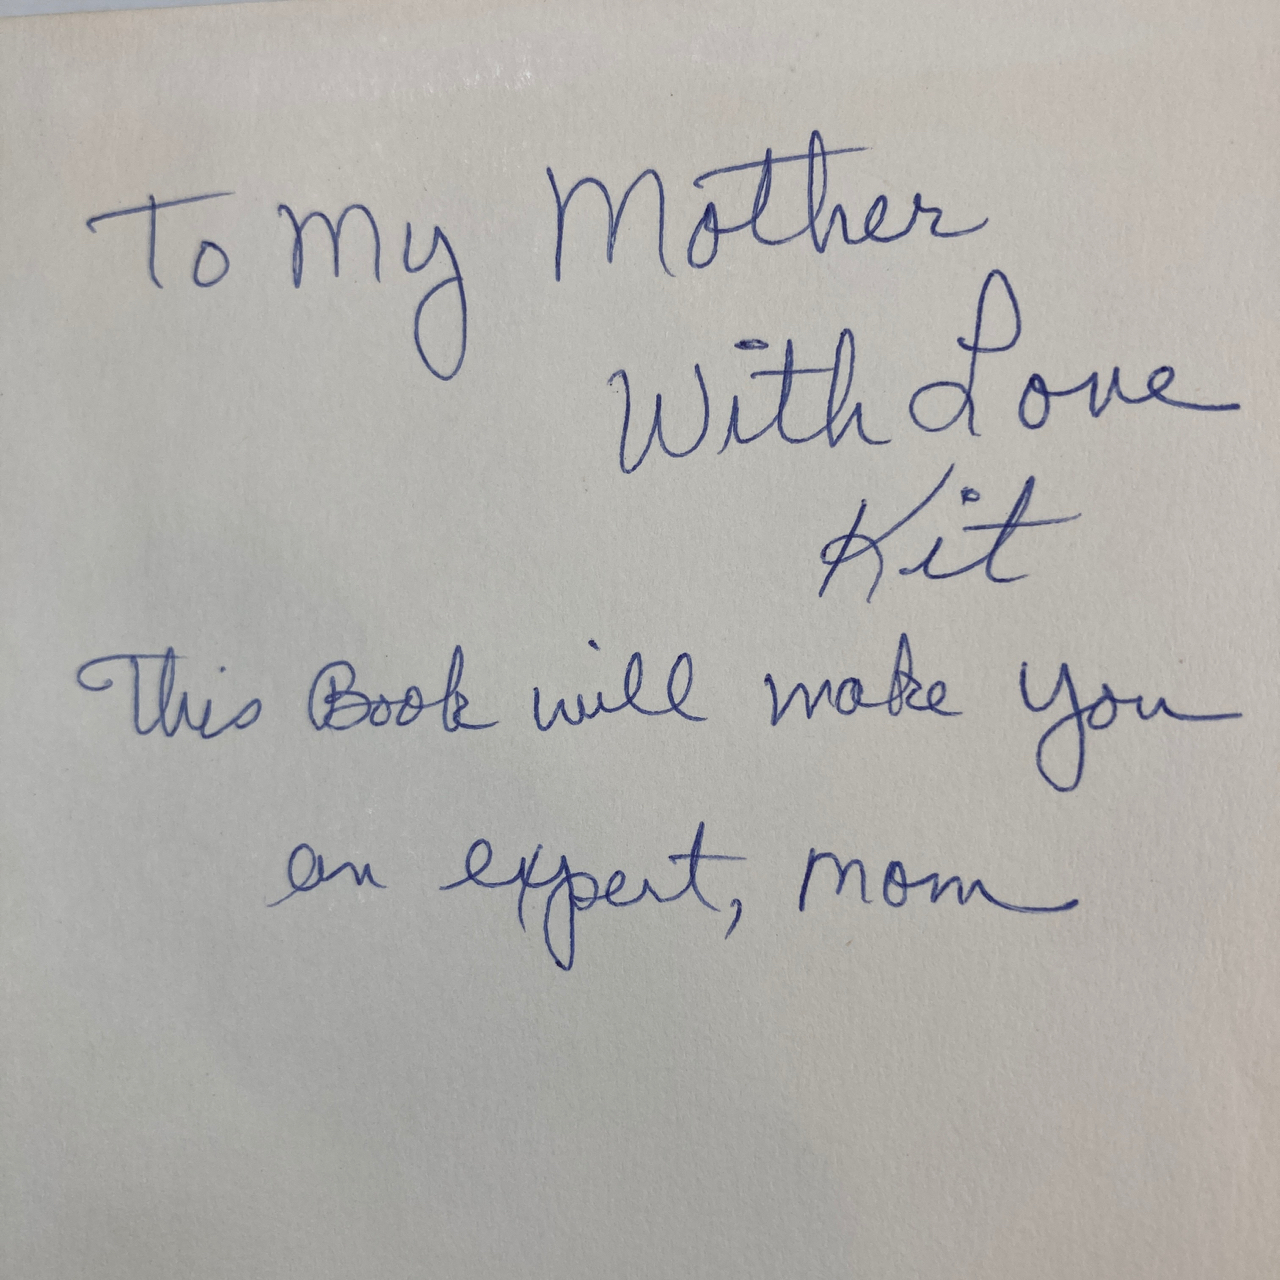 To My Mother
With Love
Kit
This Book will make you
an expert, mom